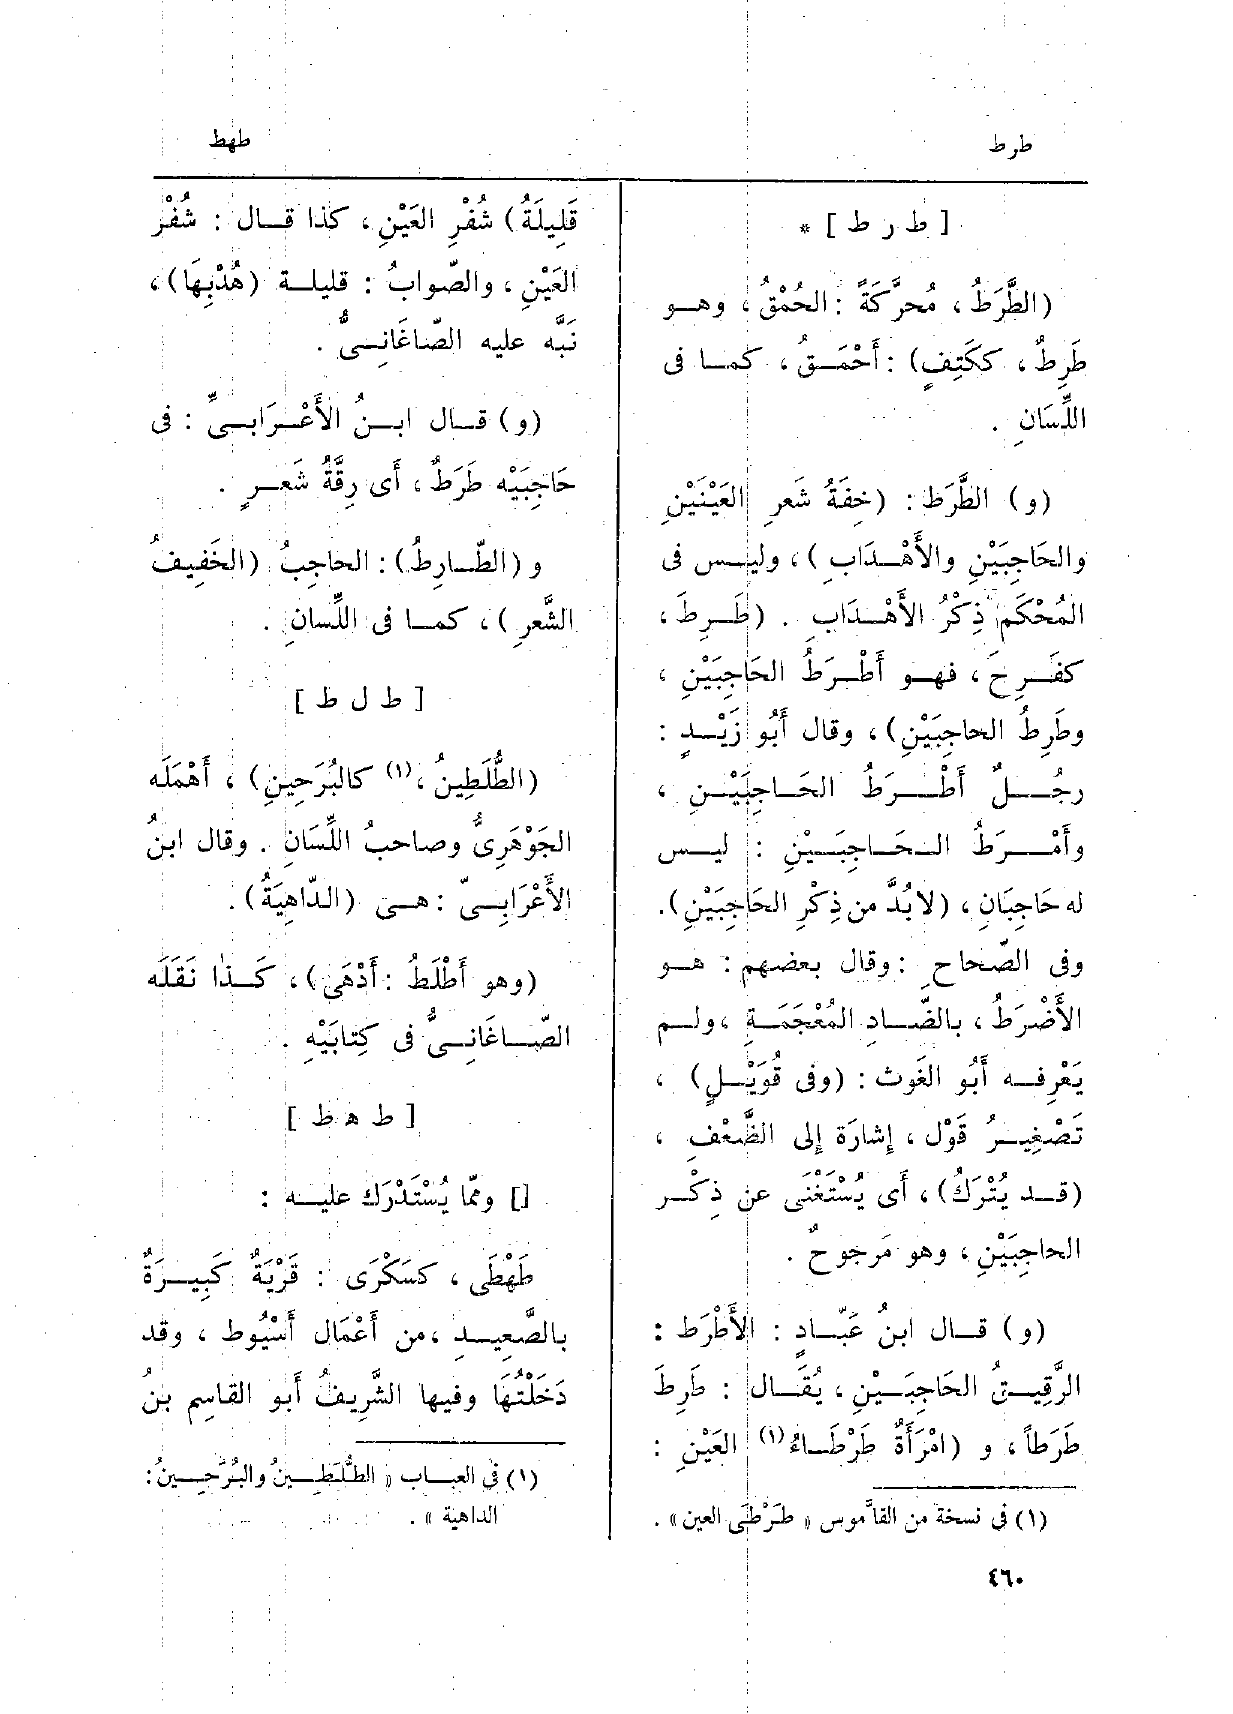 طرط
طهط
[ ط ر ط ] *
(الطَّرَطُ ، مُحرَّكَةً : الحُمْقُ ، وهو
طَرِطٌ ، ككَتِفٍ) : أَحْمَقُ ، كما فى
اللِّسَانِ .
(و) الطَّرَط : (خِفَةُ شَعرِ العَيْنَيْنِ
والحَاجِبَيْنِ والأَهْدَابِ) ، وليس فى
المُحْكَمِ ذِكْرُ الأَهْدَابِ . (طَرِطَ ،
كفَرِحَ ، فهو أَطْرَطُ الحَاجِبَيْنِ ،
وطَرِطُ الحاجِبَيْنِ) ، وقال أَبُو زَيْدٍ :
رجُلٌ أَطْرَطُ الحَاجِبَيْنِ ،
وأَمْرَطُ الحَاجِبَيْنِ : ليس
له حَاجِبَانِ ، (لابُدَّ من ذِكْرِ الحَاجِبَيْنِ).
وفى الصّحاحِ : وقال بعضهم : هو
الأَضْرَطُ ، بالضَّادِ المُعْجَمَةِ ، ولم
يَعْرِفه أَبُو الغَوث : (وفى قُوَيْلٍ) ،
تَصْغِيرُ قَوْل ، إشارَة إلى الضَّعْفِ ،
(قد يُتْرَكُ) ، أَى يُسْتَغْنَى عن ذِكْرِ
الحاجِبَيْنِ ، وهو مَرجوحٌ .
(و) قال ابنُ عَبّادٍ : الأَطْرَط :
الرَّقِيقُ الحَاجِبَيْنِ ، يُقَال : طَرِطَ
طَرَطاً ، و (امْرَأَةٌ طَرْطَاءُ (١) العَيْنِ :
(١) فى نسخة من القاموس « طَرْطَى العين » .
٤٦٠
قَلِيلَةُ) شُفْرِ العَيْنِ ، كذا قال : شُفْرُ
العَيْنِ ، والصّوابُ : قليلة (هُدْبِهَا) ،
نَبَّه عليه الصّاغَانِىُّ .
(و) قال ابنُ الأَعْرَابىِّ : فى
حَاجِبَيْه طَرَطٌ ، أَى رِقَّةُ شَعرٍ .
و (الطّارِطُ) : الحاجِبُ (الخَفِيفُ
الشَّعرِ) ، كما فى اللِّسانِ .
[ ط ل ط ]
(الطُّلَطِينُ ، (١) كالبُرَحِينِ) ، أَهْمَلَه
الجَوْهَرِىُّ وصاحبُ اللِّسَانِ . وقال ابنُ
الأَعْرَابِىّ : هى (الدّاهِيَةُ) .
(وهو أَطْلَطُ : أَدْهَى) ، كَذا نَقَلَه
الصّاغَانِىُّ فى كِتابَيْهِ .
[ ط ه ط ]
[] وممّا يُسْتَدْرَك عليه :
طَهْطَى ، كسَكْرَى : قَرْيَةٌ كَبِيرَةٌ
بالصَّعِيدِ ، من أَعْمَال أَسْيُوط ، وقد
دَخَلْتُهَا وفيها الشَّرِيفُ أَبو القاسِم بنُ
(١) فى العباب « الطُّلَطِينُ والبُرَحِينُ :
الداهية » .